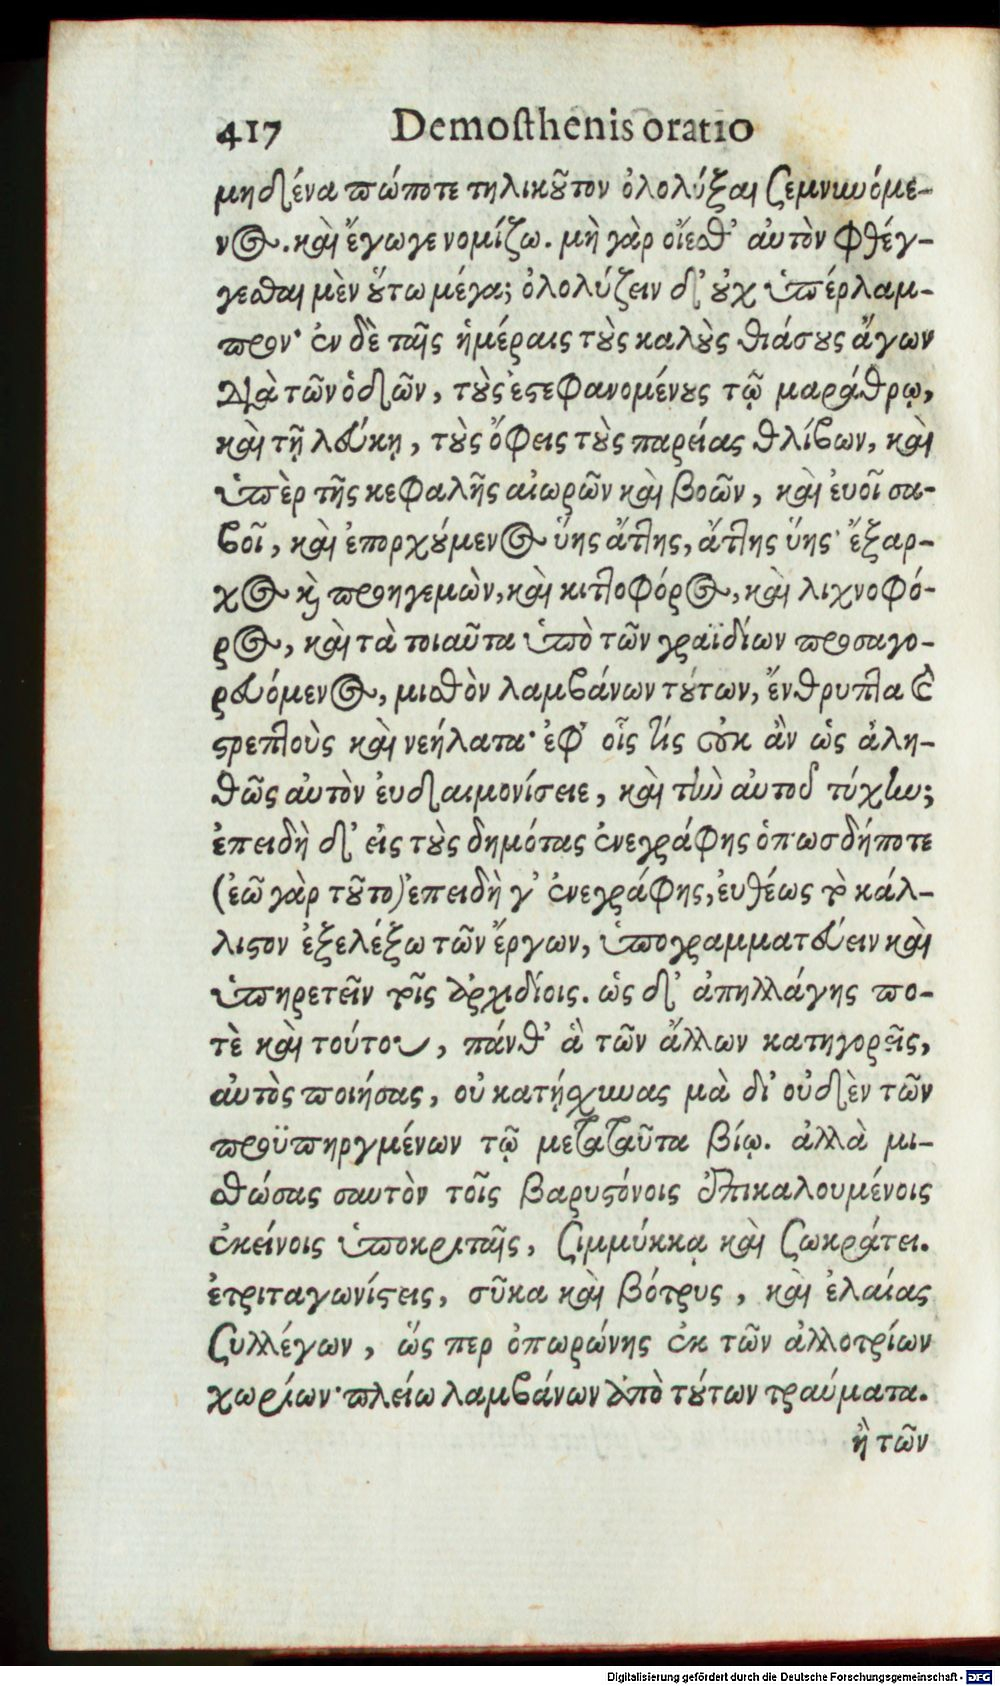 417 Demosthenis oratio
μηδένα πώποτε τηλικοῦτον ὀλολύξαι σεμνυνόμε-
νος. καὶ ἔγωγε νομίζω. μὴ γὰρ οἴεσθ' αὐτὸν φθέγ-
γεσθαι μὲν οὕτω μέγα; ὀλολύζειν δ' οὐχ ὑπέρλαμ-
προν· ἐν δὲ ταῖς ἡμέραις τοὺς καλοὺς θιάσους ἄγων
διὰ τῶν ὁδῶν, τοὺς ἐστεφανομένους τῷ μαράθρῳ,
καὶ τῇ λεύκῃ, τοὺς ὄφεις τοὺς παρείας θλίβων, καὶ
ὑπὲρ τῆς κεφαλῆς αἰωρῶν καὶ βοῶν, καὶ ἐυοῖ σα-
βοῖ, καὶ ἐπορχούμενος ὕης ἄττης, ἄττης ὕης· ἔξαρ-
χος καὶ προηγεμὼν, καὶ κιττοφόρος, καὶ λιχνοφό-
ρος, καὶ τὰ τοιαῦτα ὑπὸ τῶν γραϊδίων προσαγο-
ρευόμενος, μισθὸν λαμβάνων τούτων, ἔνθρυπτα καὶ
στρεπτοὺς καὶ νεήλατα· ἐφ' οἷς τίς οὐκ ἂν ὡς ἀλη-
θῶς αὐτὸν ἐυδαιμονίσειε, καὶ τὴν αὐτοῦ τύχην;
ἐπειδὴ δ' εἰς τοὺς δημότας ἐνεγράφης ὁπωσδήποτε
(ἐῶ γὰρ τοῦτο) ἐπειδὴ γ' ἐνεγράφης, ἐυθέως τὸ κάλ-
λιστον ἐξελέξω τῶν ἔργων, ὑπογραμματεύειν καὶ
ὑπηρετεῖν τοῖς ἀρχιδίοις. ὡς δ' ἀπηλλάγης πο-
τὲ καὶ τούτου, πάνθ' ἃ τῶν ἄλλων κατηγορεῖς,
αὐτὸς ποιήσας, οὐ κατῄσχυνας μὰ δι' οὐδὲν τῶν
προϋπηργμένων τῷ μεταταῦτα βίῳ. ἀλλὰ μι-
σθώσας σαυτὸν τοῖς βαρυστόνοις ἐπικαλουμένοις
ἐκείνοις ὑποκριταῖς, σιμμύκκᾳ καὶ σωκράτει.
ἐτριταγωνίστεις, σῦκα καὶ βότρυς, καὶ ἐλαίας
συλλέγων, ὥς περ ὀπωρώνης ἐκ τῶν ἀλλοτρίων
χωρίων· πλείω λαμβάνων ἀπὸ τούτων τραύματα.
ἢ τῶν
Digitalisierung gefördert durch die Deutsche Forschungsgemeinschaft - DFG